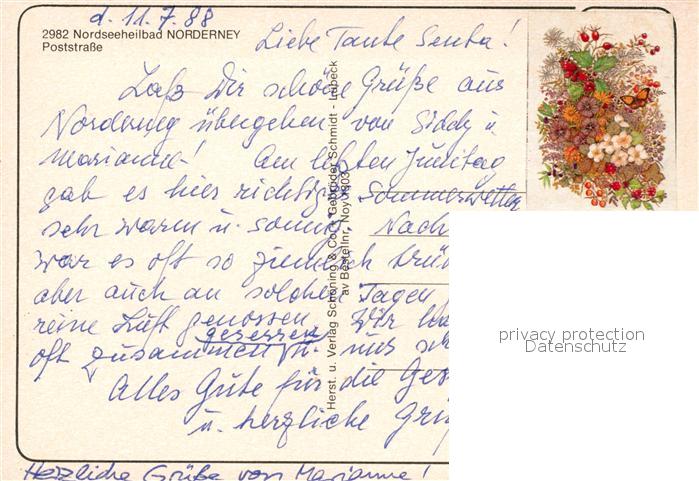 d. 11.7.88
2982 Nordseeheilbad NORDERNEY
Poststraße
Liebe Tante Senta!
Laß Dir schöne Grüße aus
Norderney übergeben von Siddy u.
Marianne! Am letzten Junitag
gab es hier richtiges Sommerwetter
sehr warm u. sonnig. Nach
war es oft so ziemlich
aber auch an solchen Tagen
reine Luft genossen. Wir
oft zusammen gesessen u. uns
Alles Gute für die
u. herzliche
Herzliche Grüße von Marianne!
Herst. u. Verlag Schöning & Co + Gebrüder Schmidt - Lübeck
av Bestellnr. Noy 1803
privacy protection
Datenschutz